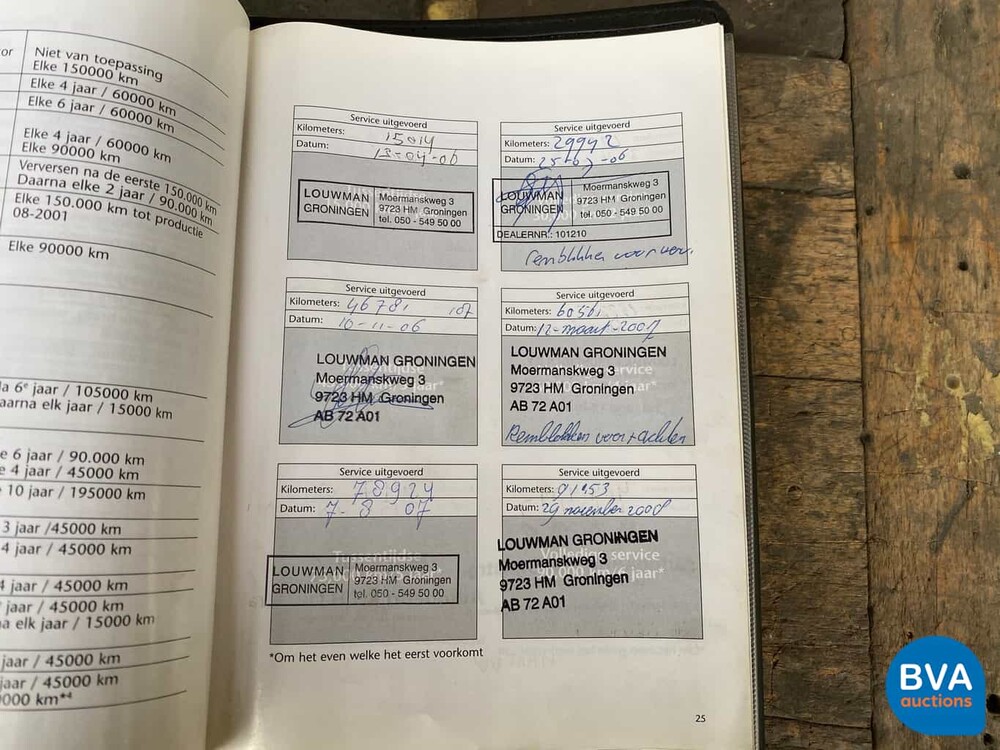 or
Niet van toepassing
Elke 150000 km
Elke 4 jaar / 60000 km
Elke 6 jaar / 60000 km
Elke 4 jaar / 60000 km
Elke 90000 km
Verversen na de eerste 150.000 km
Daarna elke 2 jaar / 90.000 km
Elke 150.000 km tot productie
08-2001
Elke 90000 km
a 6e jaar / 105000 km
aarna elk jaar / 15000 km
e 6 jaar / 90.000 km
e 4 jaar / 45000 km
10 jaar / 195000 km
3 jaar /45000 km
4 jaar / 45000 km
4 jaar / 45000 km
jaar / 45000 km
a elk jaar / 15000 km
jaar / 45000 km
jaar / 45000 km
000 km*4
Service uitgevoerd
Kilometers: 15014
Datum: 13-04-06
LOUWMAN GRONINGEN
Moermanskweg 3
9723 HM Groningen
tel. 050 - 549 50 00
Service uitgevoerd
Kilometers: 29942
Datum: 25-07-06
LOUWMAN GRONINGEN
Moermanskweg 3
9723 HM Groningen
tel. 050 - 549 50 00
DEALERNR.: 101210
remblokken voor
Service uitgevoerd
Kilometers: 46781
Datum: 10-11-06
LOUWMAN GRONINGEN
Moermanskweg 3
9723 HM Groningen
AB 72 A01
Service uitgevoerd
Kilometers: 60561
Datum: 12-maart-2007
LOUWMAN GRONINGEN
Moermanskweg 3
9723 HM Groningen
AB 72 A01
service
Remblokken voor + achter
Service uitgevoerd
Kilometers: 78924
Datum: 7-8 07
LOUWMAN GRONINGEN
Moermanskweg 3
9723 HM Groningen
tel. 050 - 549 50 00
Tussentijdse
Service uitgevoerd
Kilometers: 91153
Datum: 29 november 2008
LOUWMAN GRONINGEN
Moermanskweg 3
9723 HM Groningen
AB 72 A01
Volledige service
90.000 km/6 jaar*
*Om het even welke het eerst voorkomt
25
BVA
auctions